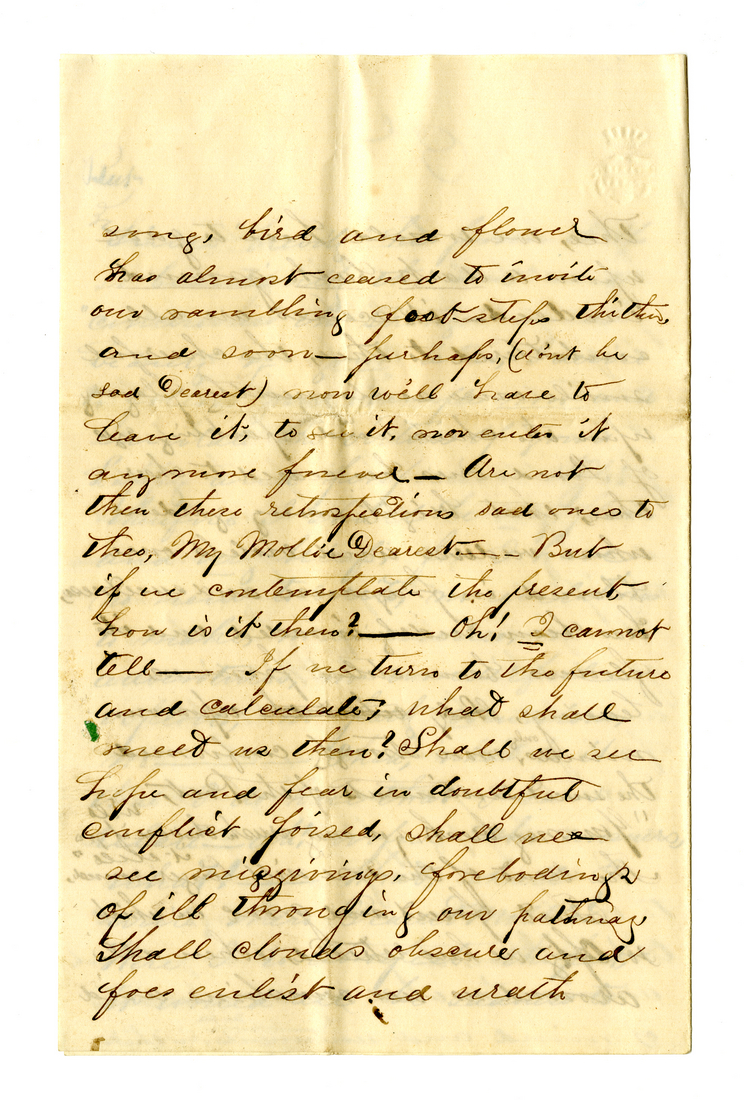 song, bird and flower
has almost ceased to invite
our rambling foot-steps thither,
and soon — perhaps, (don't be
sad Dearest) now we'll have to
leave it, to see it, nor enter it
anymore forever — Are not
then these retrospections sad ones to
thee, My Mollie Dearest. — But
if we contemplate the present,
how is it then? — Oh! I cannot
tell — If we turn to the future
and calculate; what shall
meet us then? Shall we see
hope and fear in doubtful
conflict poised, shall we
see misgivings, forebodings
of ill thronging our pathway
Shall clouds obscure and
foes enlist and wrath